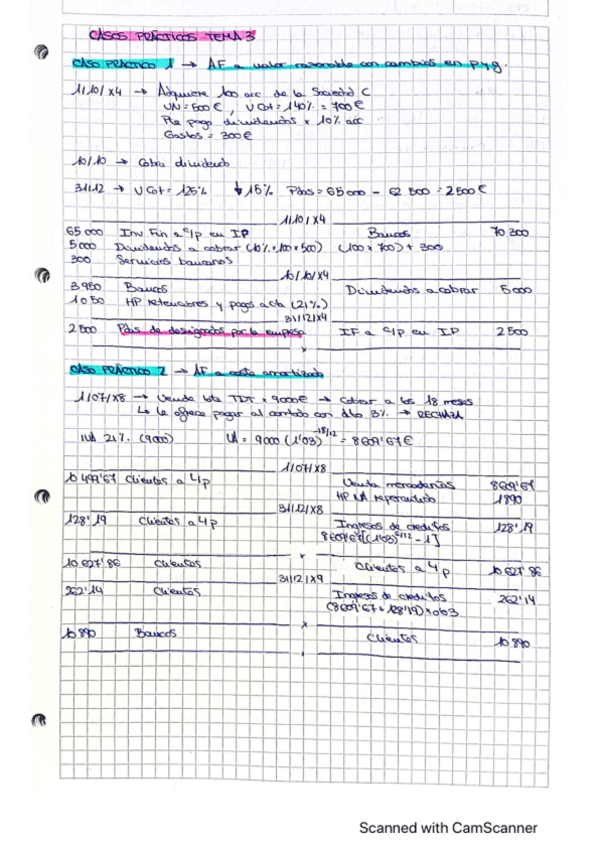 CASOS PRÁCTICOS TEMA 3
CASO PRÁCTICO 1 → AF a valor razonable con cambios en pyg.
1/10/X4 → Adquiere 100 acc de la Sociedad C
VN = 500€, V Cot = 140% = 700€
Pte pago dividendos x 10% acc
Gastos = 300€
10/10 → Cobra dividendo
31/12 → V Cot = 125% ↓15% Pdas = 65000 - 62500 = 2500€
1/10/X4
65000 Inv Fin a c/p en IP Bancos 70300
5000 Dividendos a cobrar (10% · 100 x 500) (100 x 700) + 300
300 Servicios bancarios
10/10/X4
3950 Bancos Dividendos a cobrar 5000
1050 HP retenciones y pagos a cta (21%)
31/12/X4
2500 Pdas de designados por la empresa IF a c/p en IP 2500
x
CASO PRÁCTICO 2 → AF a coste amortizado
1/07/X8 → Vende lote TDT x 9000€ → Cobrar a los 18 meses
Lo le ofrece pagar al contado con dto 3% → RECHAZA
IVA 21% (9000) VA = 9000 (1'03)^-18/12 = 8609'67€
1/07/X8
10499'67 Clientes a l/p Venta mercaderías 8609'67
HP IVA repercutido 1890
31/12/X8
128'19 Clientes a l/p Ingresos de créditos 128'19
8609'67[(1'03)^6/12 - 1]
x
10627'86 Clientes Clientes a l/p 10627'86
31/12/X9
262'14 Clientes Ingresos de créditos 262'14
(8609'67 + 128'19) x 0'03
x
10890 Bancos Clientes 10890
Scanned with CamScanner